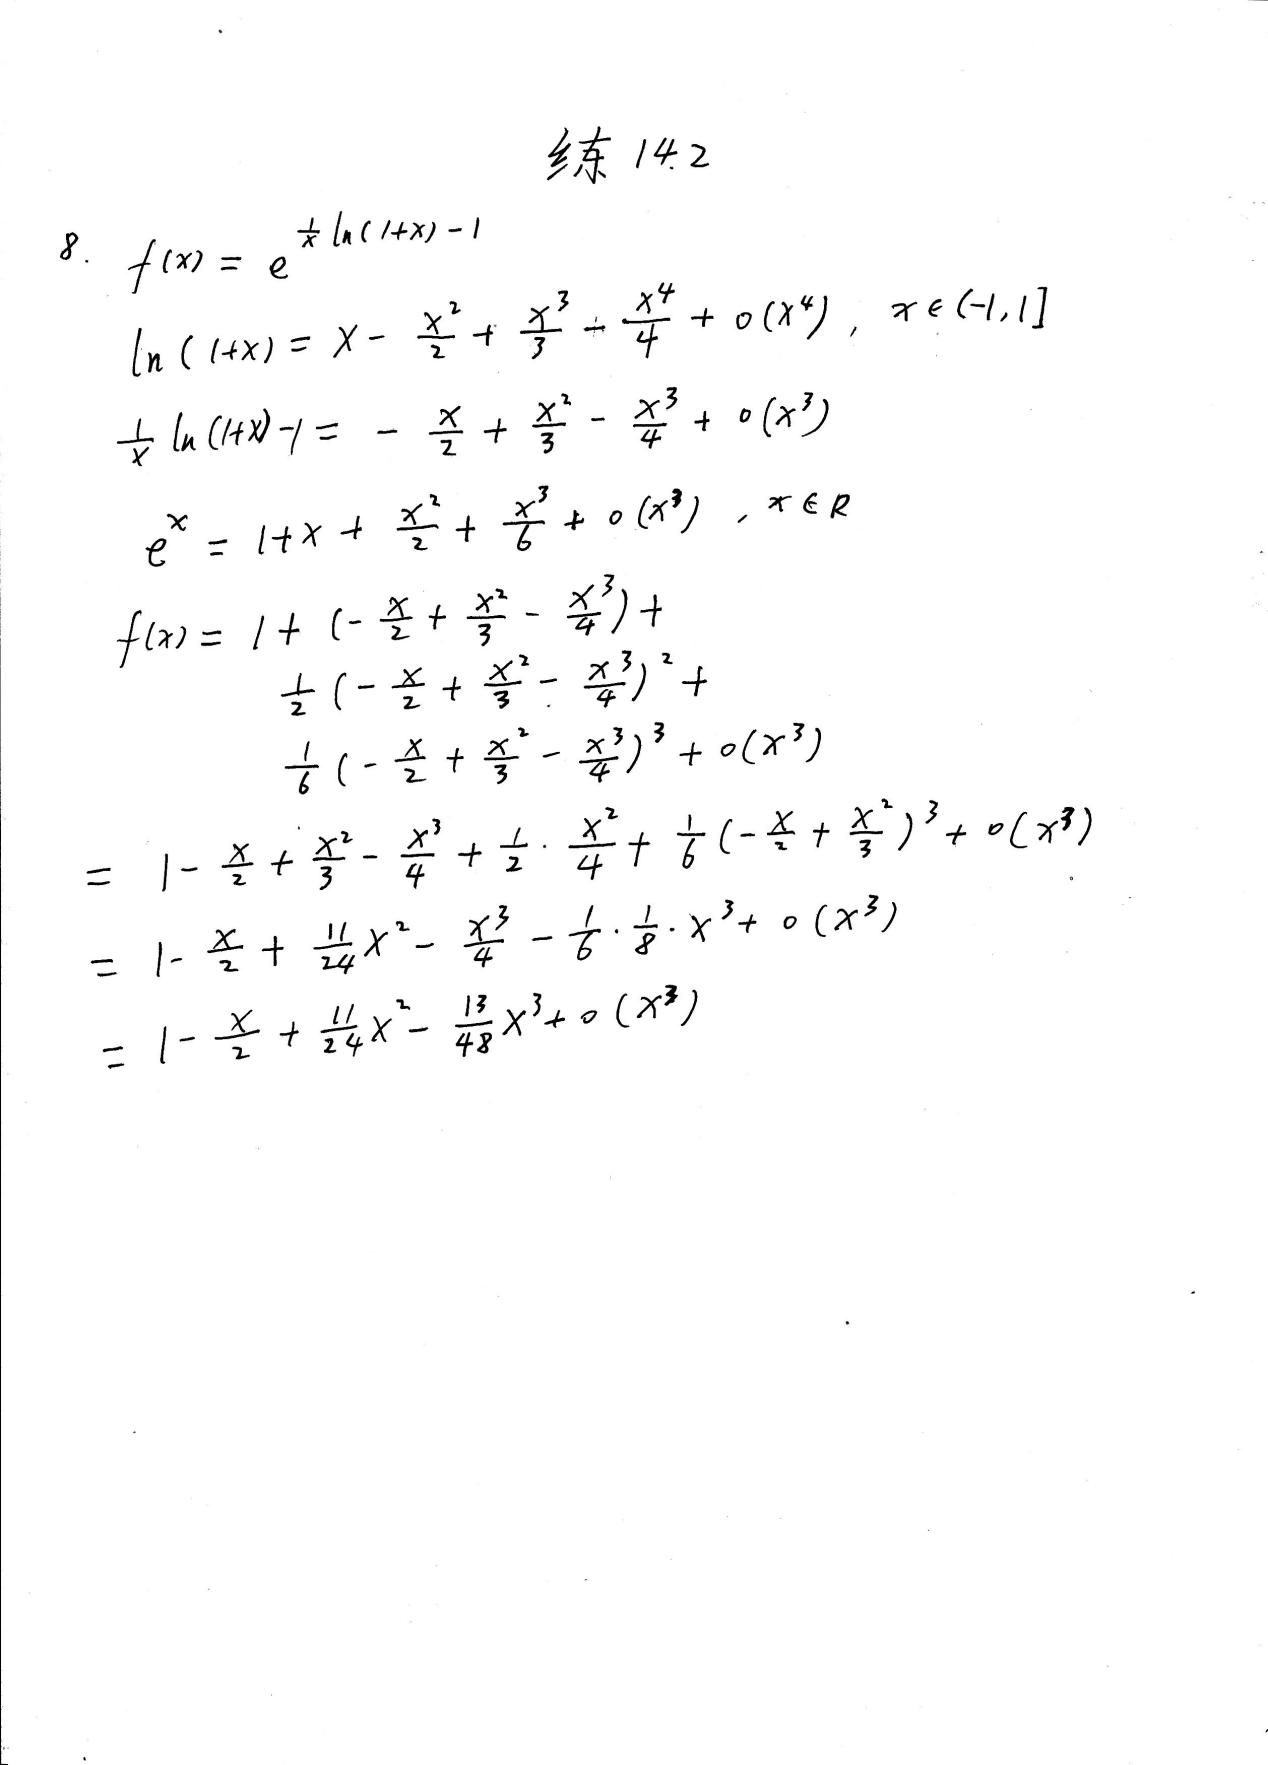 练 14.2
8. f(x) = e^{\frac{1}{x} ln(1+x) - 1}
ln(1+x) = x - \frac{x^2}{2} + \frac{x^3}{3} - \frac{x^4}{4} + o(x^4), x∈(-1,1]
\frac{1}{x} ln(1+x) - 1 = - \frac{x}{2} + \frac{x^2}{3} - \frac{x^3}{4} + o(x^3)
e^x = 1 + x + \frac{x^2}{2} + \frac{x^3}{6} + o(x^3), x∈R
f(x) = 1 + (-\frac{x}{2} + \frac{x^2}{3} - \frac{x^3}{4}) +
\frac{1}{2} (-\frac{x}{2} + \frac{x^2}{3} - \frac{x^3}{4})^2 +
\frac{1}{6} (-\frac{x}{2} + \frac{x^2}{3} - \frac{x^3}{4})^3 + o(x^3)
= 1 - \frac{x}{2} + \frac{x^2}{3} - \frac{x^3}{4} + \frac{1}{2} · \frac{x^2}{4} + \frac{1}{6} (-\frac{x}{2} + \frac{x^2}{3})^3 + o(x^3)
= 1 - \frac{x}{2} + \frac{11}{24} x^2 - \frac{x^3}{4} - \frac{1}{6} · \frac{1}{8} · x^3 + o(x^3)
= 1 - \frac{x}{2} + \frac{11}{24} x^2 - \frac{13}{48} x^3 + o(x^3)